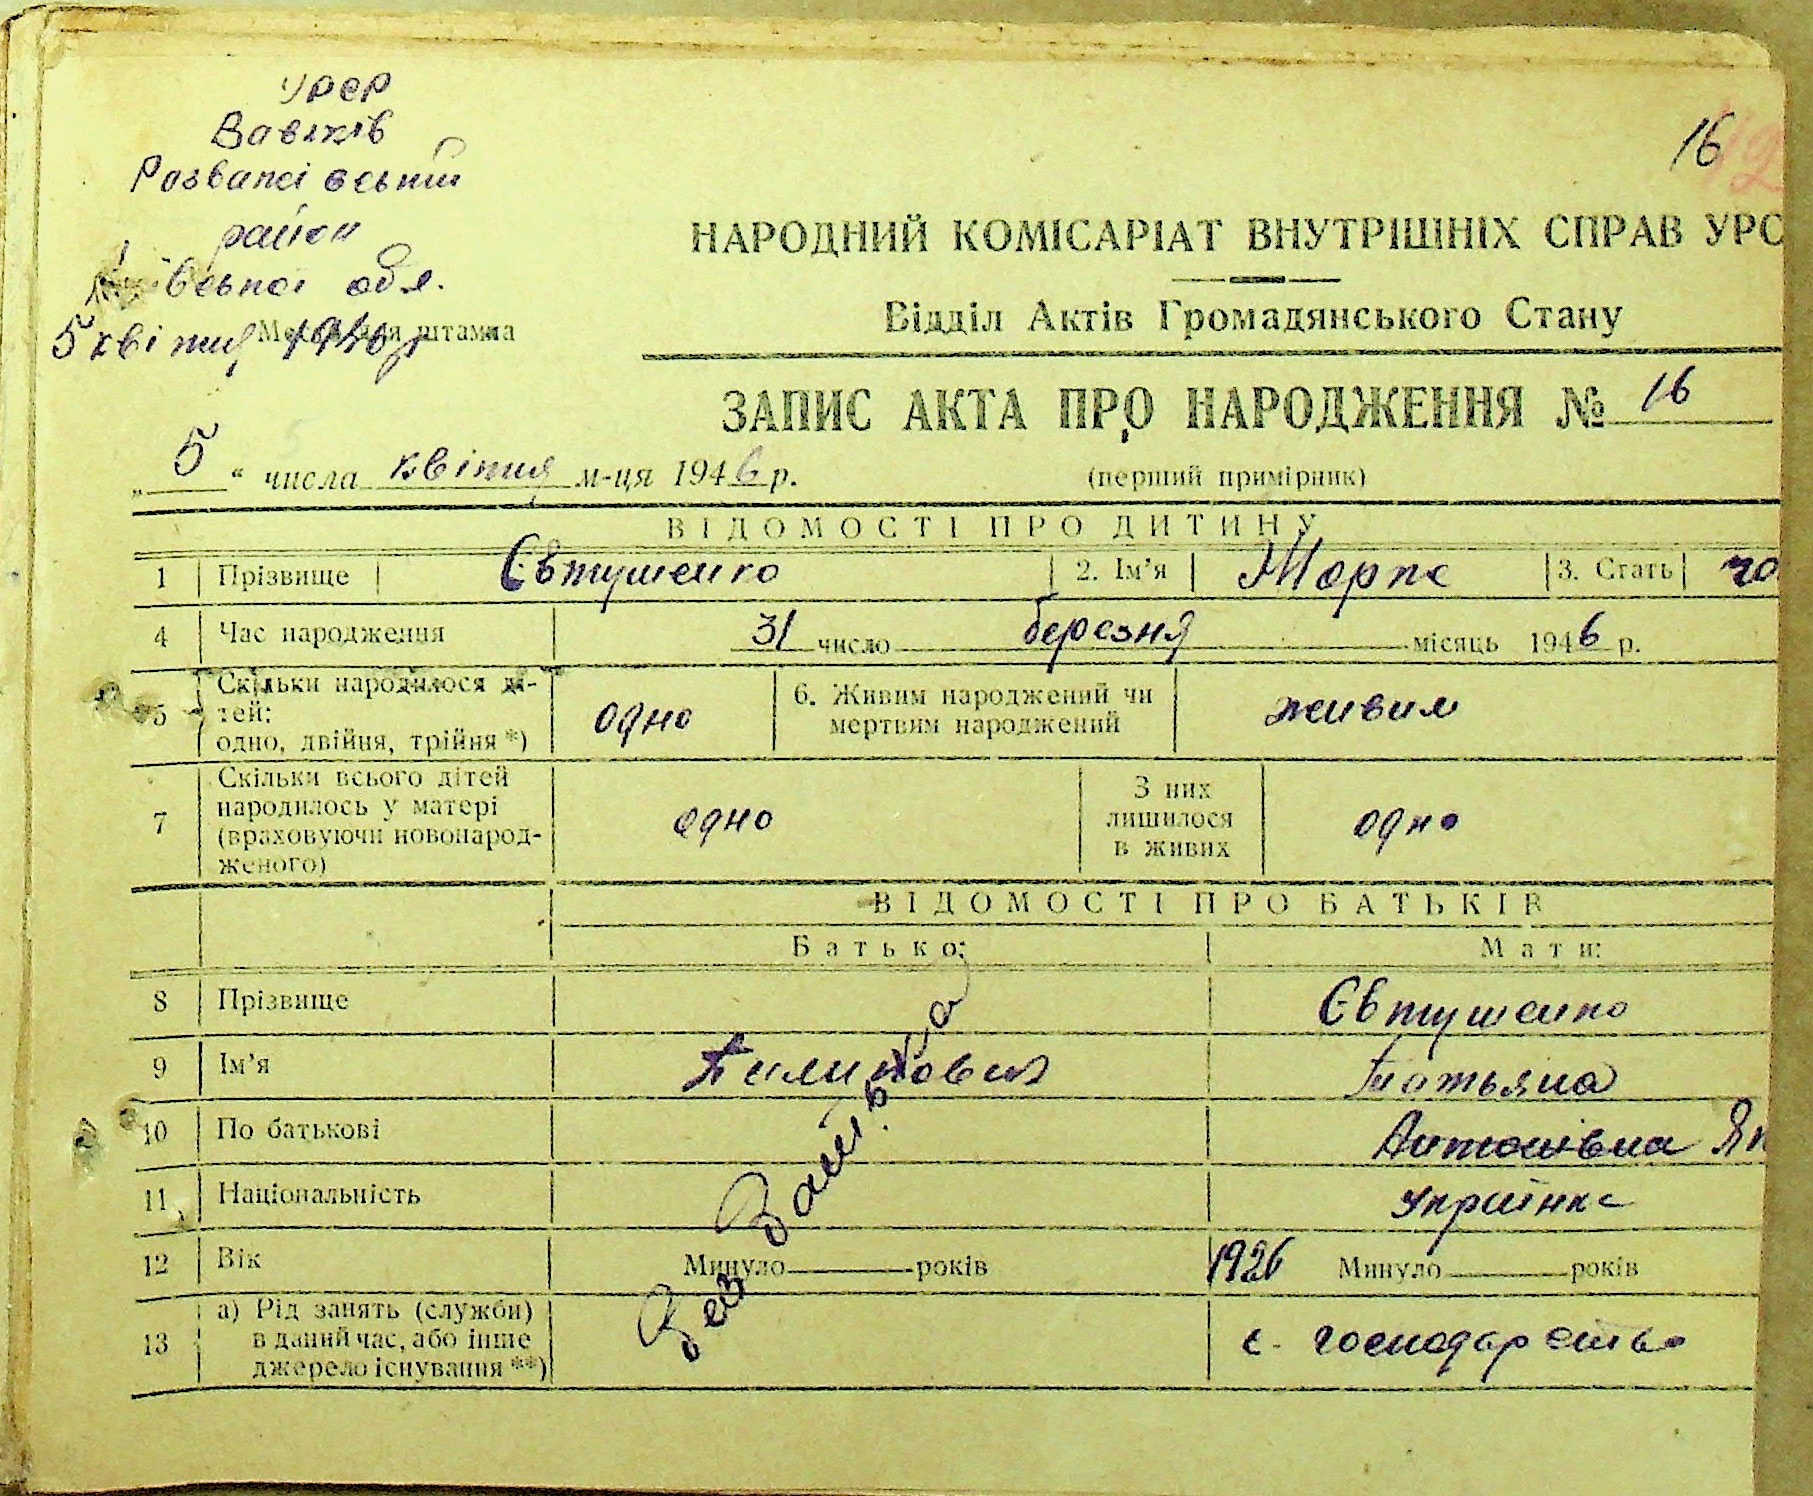 УРСР
Розважівський
район
Київської обл.
5 квітня 1946 р
Місце для штампа
16
НАРОДНИЙ КОМІСАРІАТ ВНУТРІШНІХ СПРАВ УРС
Відділ Актів Громадянського Стану
ЗАПИС АКТА ПРО НАРОДЖЕННЯ № 16
„ 5 “ числа квітня м-ця 1946 р.
(перший примірник)
ВІДОМОСТІ ПРО ДИТИНУ
1 Прізвище Євтушенко 2. Ім’я 3. Стать чо
4 Час народження 31 число березня місяць 1946 р.
5 Скільки народилося ді-
тей:
одно, двійня, трійня *) одно 6. Живим народжений чи
мертвим народжений живим
7 Скільки всього дітей
народилось у матері
(враховуючи новонарод-
женого) одно З них
лишилося
в живих одно
ВІДОМОСТІ ПРО БАТЬКІВ
Батько: Мати:
8 Прізвище Євтушенко
9 Ім’я Татьяна
10 По батькові Антонівна
11 Національність Українка
12 Вік Минуло років 1926 Минуло років
13 а) Рід занять (служби)
в даний час, або інше
джерело існування **) с. господарство
Без Батька